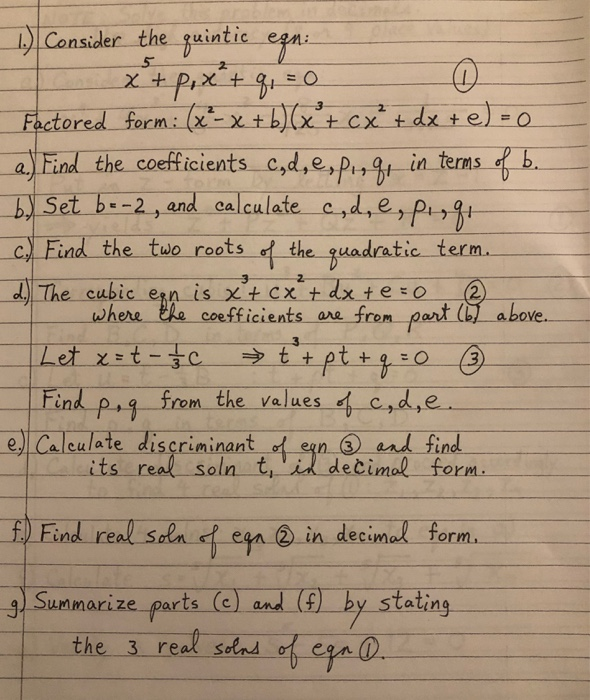 1.) Consider the quintic eqn:
x⁵ + p₁x² + q₁ = 0 ①
Factored form: (x² - x + b)(x³ + cx² + dx + e) = 0
a.) Find the coefficients c, d, e, p₁, q₁ in terms of b.
b.) Set b = -2, and calculate c, d, e, p₁, q₁
c.) Find the two roots of the quadratic term.
d.) The cubic eqn is x³ + cx² + dx + e = 0 ②
where the coefficients are from part (b) above.
Let x = t - ⅓c ⇒ t³ + pt + q = 0 ③
Find p, q from the values of c, d, e.
e.) Calculate discriminant of eqn ③ and find
its real soln t, in decimal form.
f.) Find real soln of eqn ② in decimal form.
g.) Summarize parts (c) and (f) by stating
the 3 real solns of eqn ①.